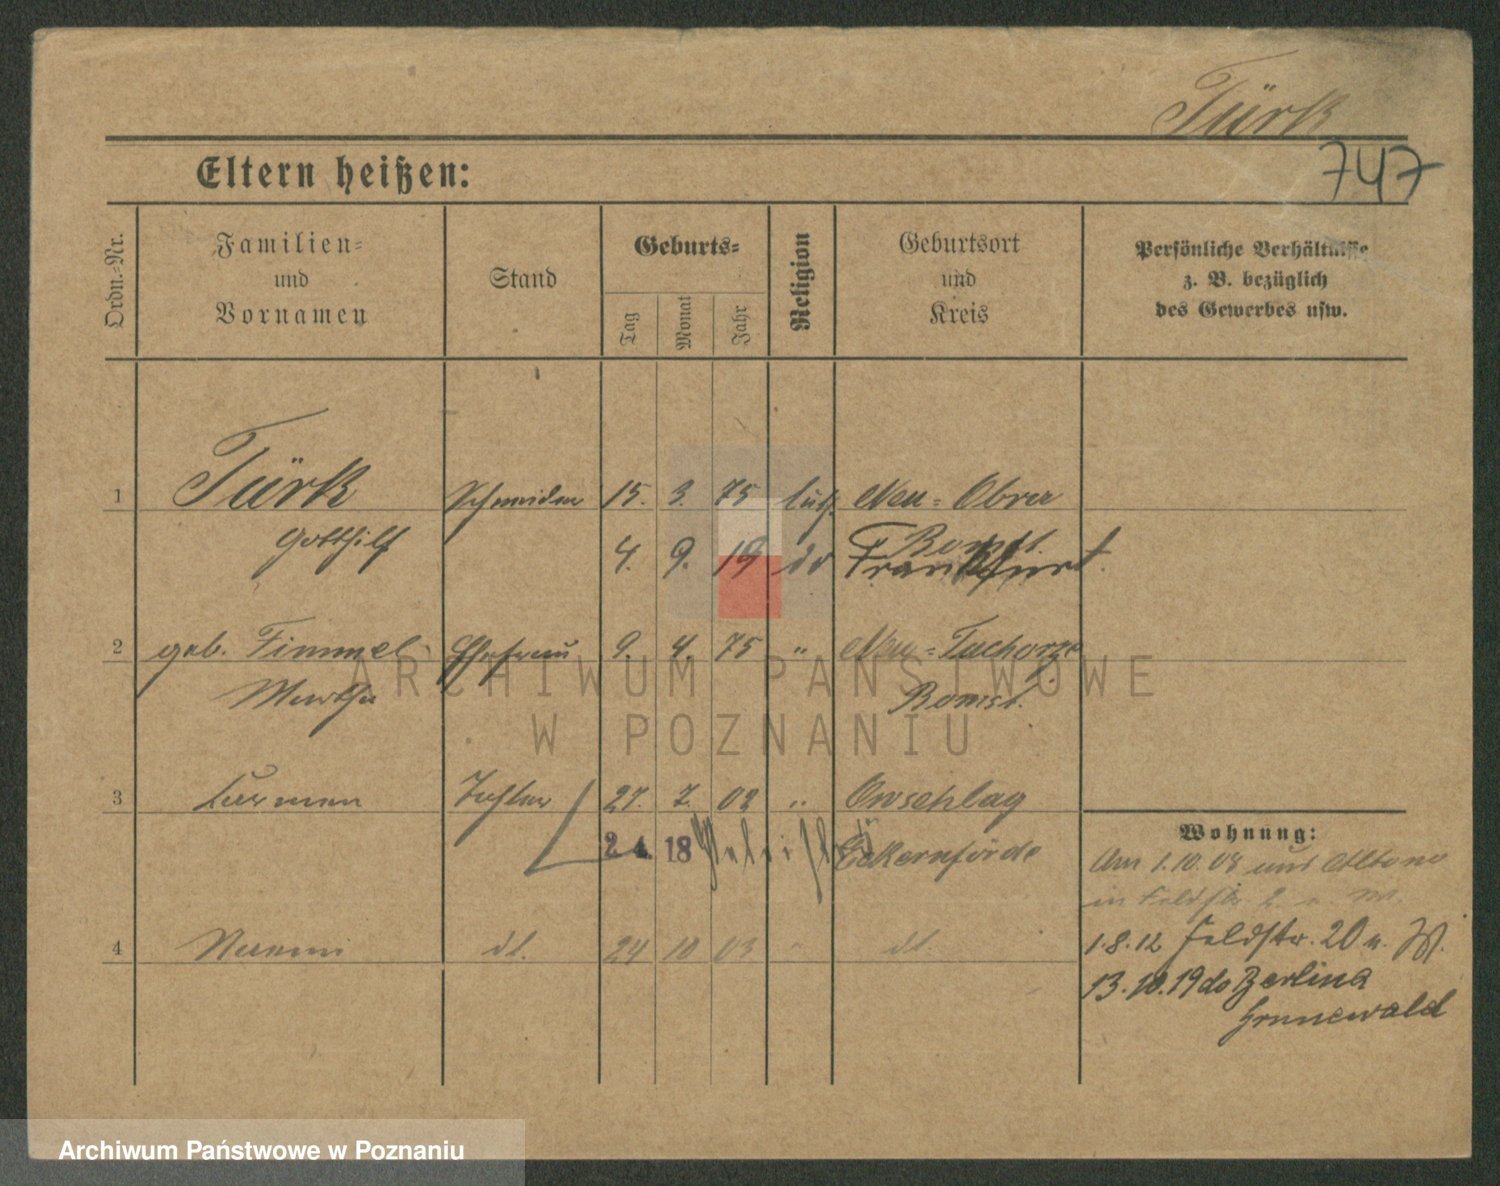 Türk
747
Eltern heißen:
Ordn.-Nr.
Familien-
und
Vornamen
Stand
Geburts-
Tag
Monat
Jahr
Religion
Geburtsort
und
Kreis
Persönliche Verhältnisse
z. B. bezüglich
des Gewerbes usw.
1 Türk Schneider 15. 3. 75 luth. Neu-Obra
Gotthilf Bomst.
4. 9. 19 do Frankfurt.
2 geb. Fimmel Ehefrau 9. 4. 75 " Neu-Tuchorze
Martha Bomst.
ARCHIWUM PAŃSTWOWE
W POZNANIU
3 Carmen Tochter 27. 7. 02 " Owschlag
24. 18 Eckernförde
4 Naemi dt. 24 10 03 " dt.
Wohnung:
Am 1.10.08 aus Altona
in Feldstr.
1.8.12 Feldstr. 20 a. W.
13.10.19 do Berlin
Grunewald
Archiwum Państwowe w Poznaniu